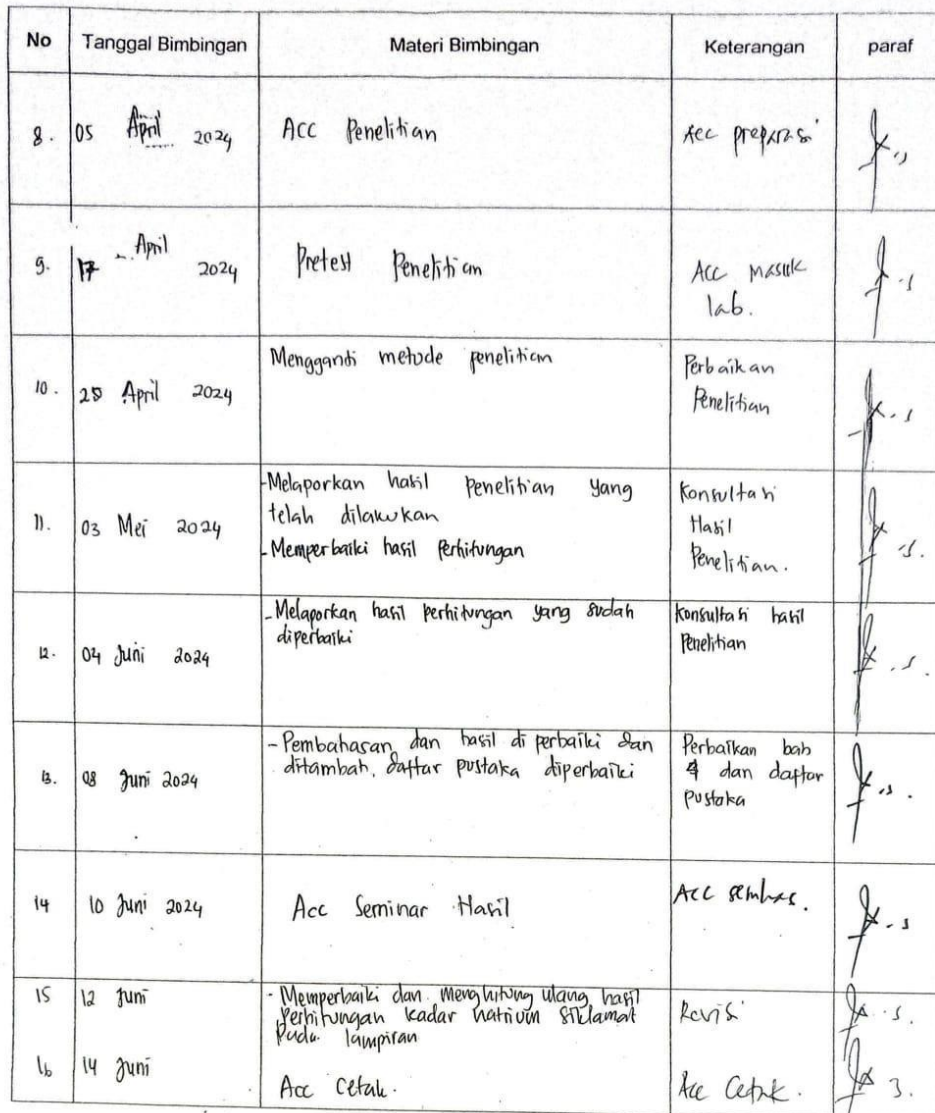 No Tanggal Bimbingan Materi Bimbingan Keterangan paraf
8. 05 April 2024 Acc Penelitian Acc preparasi
9. 17 April 2024 Pretest Penelitian Acc masuk
lab.
10. 25 April 2024 Mengganti metode penelitian Perbaikan
Penelitian
11. 03 Mei 2024 -Melaporkan hasil penelitian yang
telah dilakukan
-Memperbaiki hasil Perhitungan
Konsultasi
Hasil
Penelitian.
12. 04 Juni 2024 -Melaporkan hasil perhitungan yang sudah
diperbaiki
Konsultasi hasil
Penelitian
13. 08 Juni 2024 -Pembahasan dan hasil di perbaiki dan
ditambah, daftar pustaka diperbaiki
Perbaikan bab
4 dan daftar
pustaka
14 10 Juni 2024 Acc Seminar Hasil Acc semhas.
15 12 Juni - Memperbaiki dan menghitung ulang hasil
Perhitungan kadar natrium siklamat
Pada lampiran
Revisi
16 14 Juni Acc Cetak. Acc Cetak.